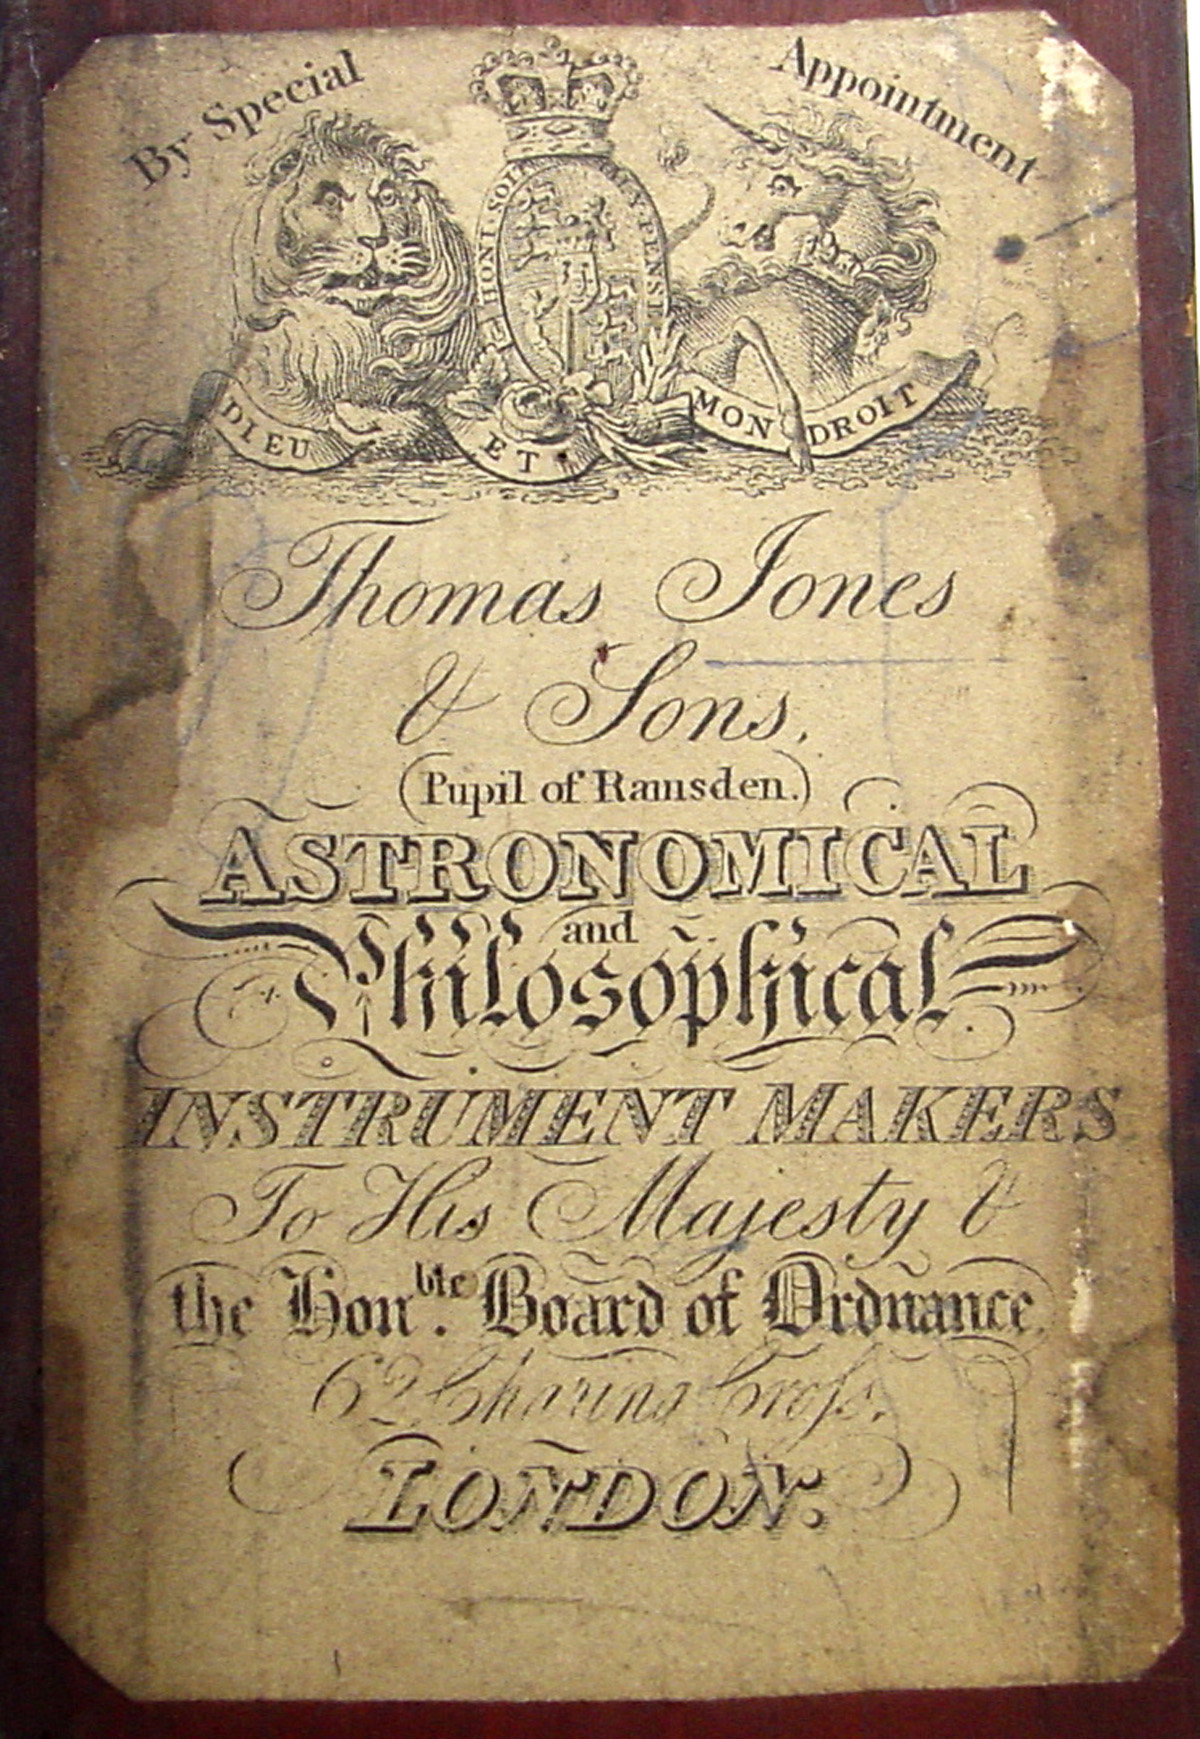 By Special Appointment
HONI SOIT QUI MAL Y PENSE
DIEU ET MON DROIT
Thomas Jones
& Sons,
(Pupil of Ramsden.)
ASTRONOMICAL
and
Philosophical
INSTRUMENT MAKERS
To His Majesty &
the Honble. Board of Ordnance,
62 Charing Croſs.
LONDON.